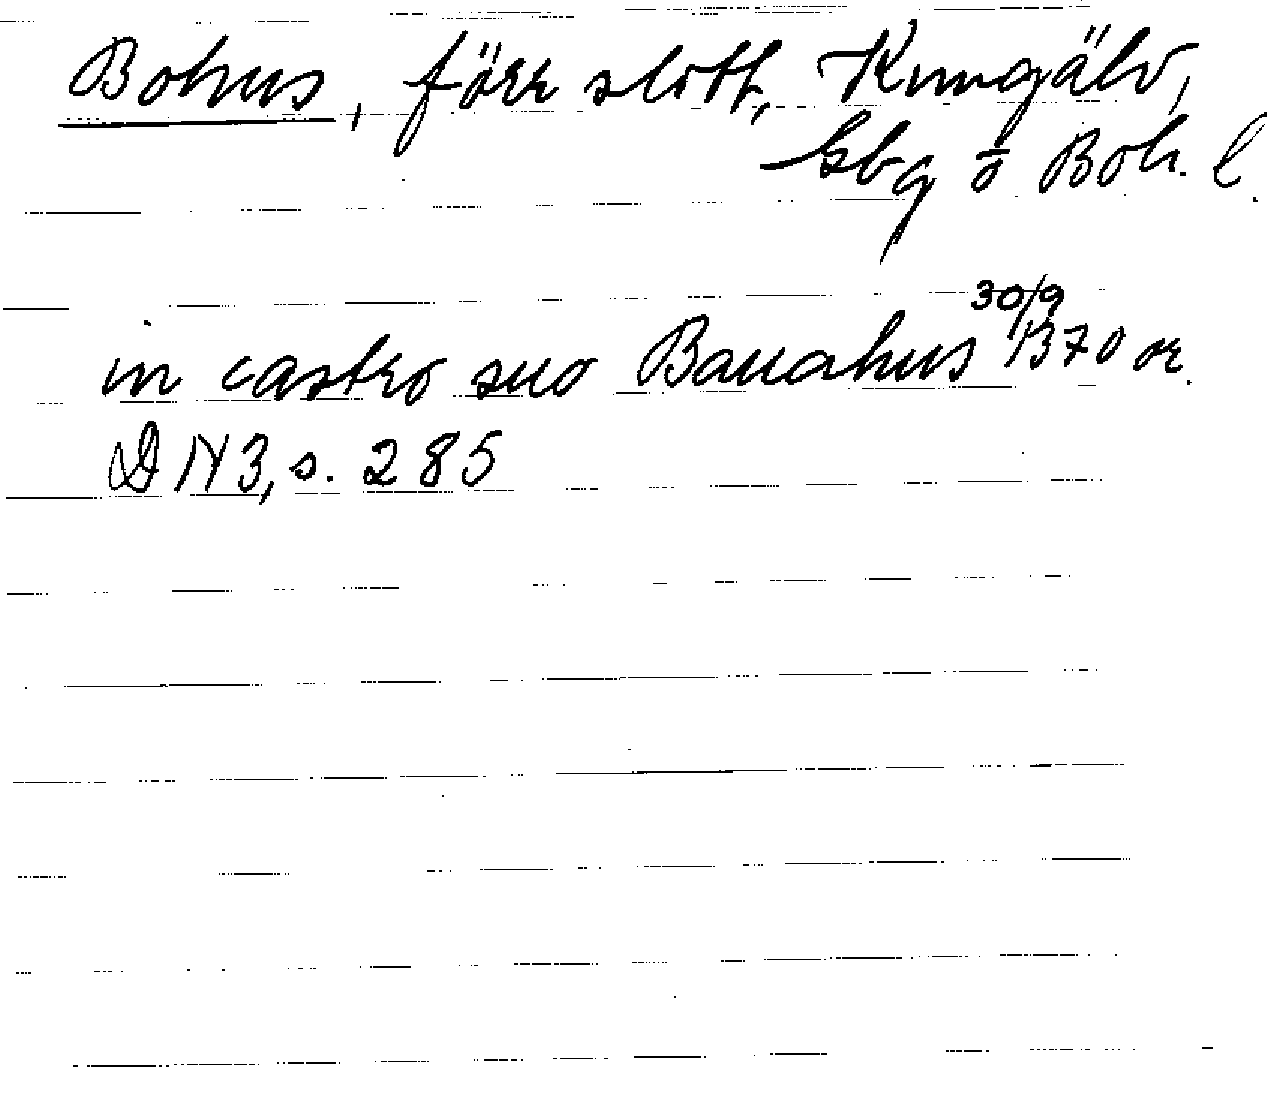 Bohus, förr slott, Kungälv,
Gbg o Boh. l.
in castro suo Bauahus 30/9 1370 or.
DN 3, s. 285